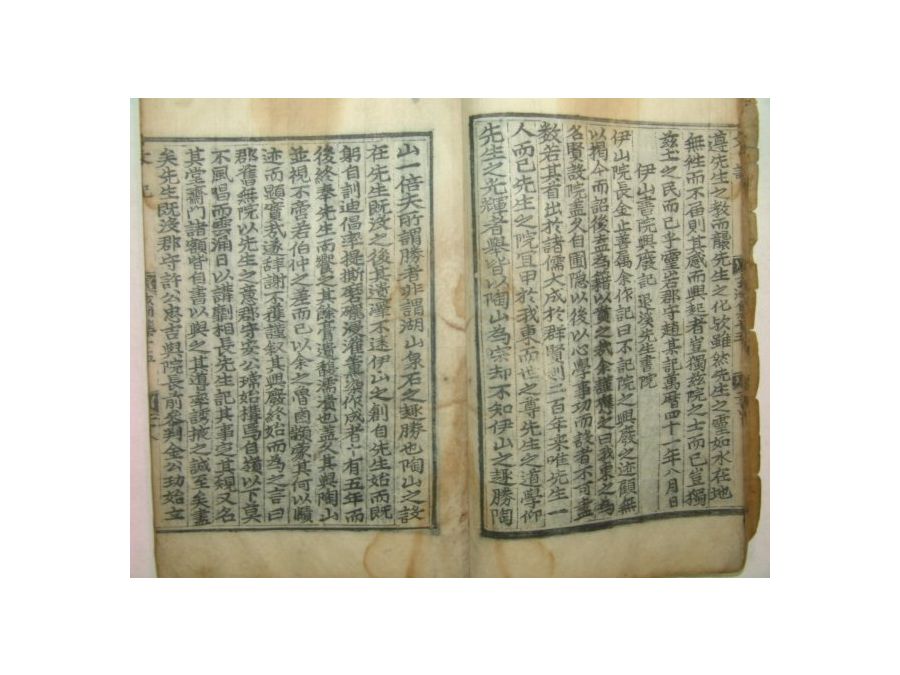 遵先生之教而襲先生之化欤雖然先生之靈如水在地
無徃而不在則其感而興起者豈獨玆院之士而已豈獨
玆土之民而已乎靈岩郡守趙某記萬曆四十一年八月日
伊山書院興廢記 退溪先生書院
伊山院長金止善屬余作記曰不記院之興廢之迹顧無
以揭今而詔後盍為籍以賁之哉余謹應之曰我東之為
名賢設院盖久自圃隐以後以心學事功而設者不可盡
数若其首出於諸儒大成於群賢則二百年來唯先生一
人而已先生之院宜甲於我東而世之尊先生之道學仰
先生之光輝者擧皆以陶山為宗却不知伊山之趣勝陶
山一倍矣所謂勝者非謂湖山泉石之趣勝也陶山之設
在先生既沒之後其遺澤不逮伊山之創自先生始而既
躬自訓迪倡率提撕磨礲浸灌薰染作成者有五年而
後終奉先生而饗之其餘膏遺馥濡濆也盖久其與陶山
並視不啻若伯仲之差而已以余之魯鹵顓蒙其何以賾
迹而顯實哉遂辞謝不獲謹叙其興廢終始而為之言曰
郡舊無院以先生之意郡守安公瑺始搆焉自嶺以下莫
不風唱而雲涌日以講劘相長先生記其事定其規又名
其堂齋門諸額皆自書以與之其導率誘掖之誠至矣盡
矣先生既沒郡守許公忠吉與院長前叅判金公玏始立